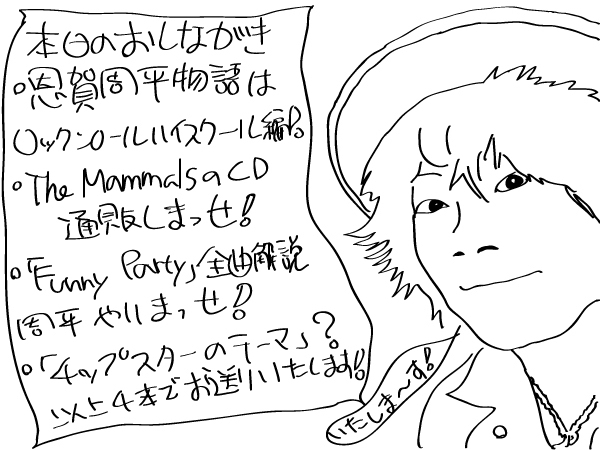 本日のおしながき
○恩賀周平物語は
ロックンロールハイスクール編。
○The MammalsのCD
通販しまっせ!
○「Funny Party」全曲解説
周平やりまっせ!
○「チップスターのテーマ」?
以上4本でお送りいたします!!
いたしま〜す!